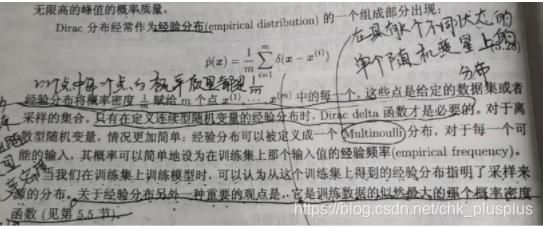 无限高的峰值的概率质量。
Dirac 分布经常作为经验分布(empirical distribution) 的一个组成部分出现:
p̂(x) = 1/m ∑_{i=1}^{m} δ(x − x^{(i)}) (3.28)
在具有k个不同状态的
单个随机变量上的
分布
m个点中每个点的概率质量都是1/m
经验分布将概率密度 1/m 赋给 m 个点 x^{(1)}, ..., x^{(m)} 中的每一个, 这些点是给定的数据集或者
采样的集合。只有在定义连续型随机变量的经验分布时, Dirac delta 函数才是必要的。对于离
散型随机变量, 情况更加简单: 经验分布可以被定义成一个 Multinoulli 分布, 对于每一个可
能的输入, 其概率可以简单地设为在训练集上那个输入值的经验频率(empirical frequency)。
当我们在训练集上训练模型时, 可以认为从这个训练集上得到的经验分布指明了采样来
源的分布。关于经验分布另外一种重要的观点是, 它是训练数据的似然最大的那个概率密度
函数 (见第 5.5 节)。
https://blog.csdn.net/chk_plusplus